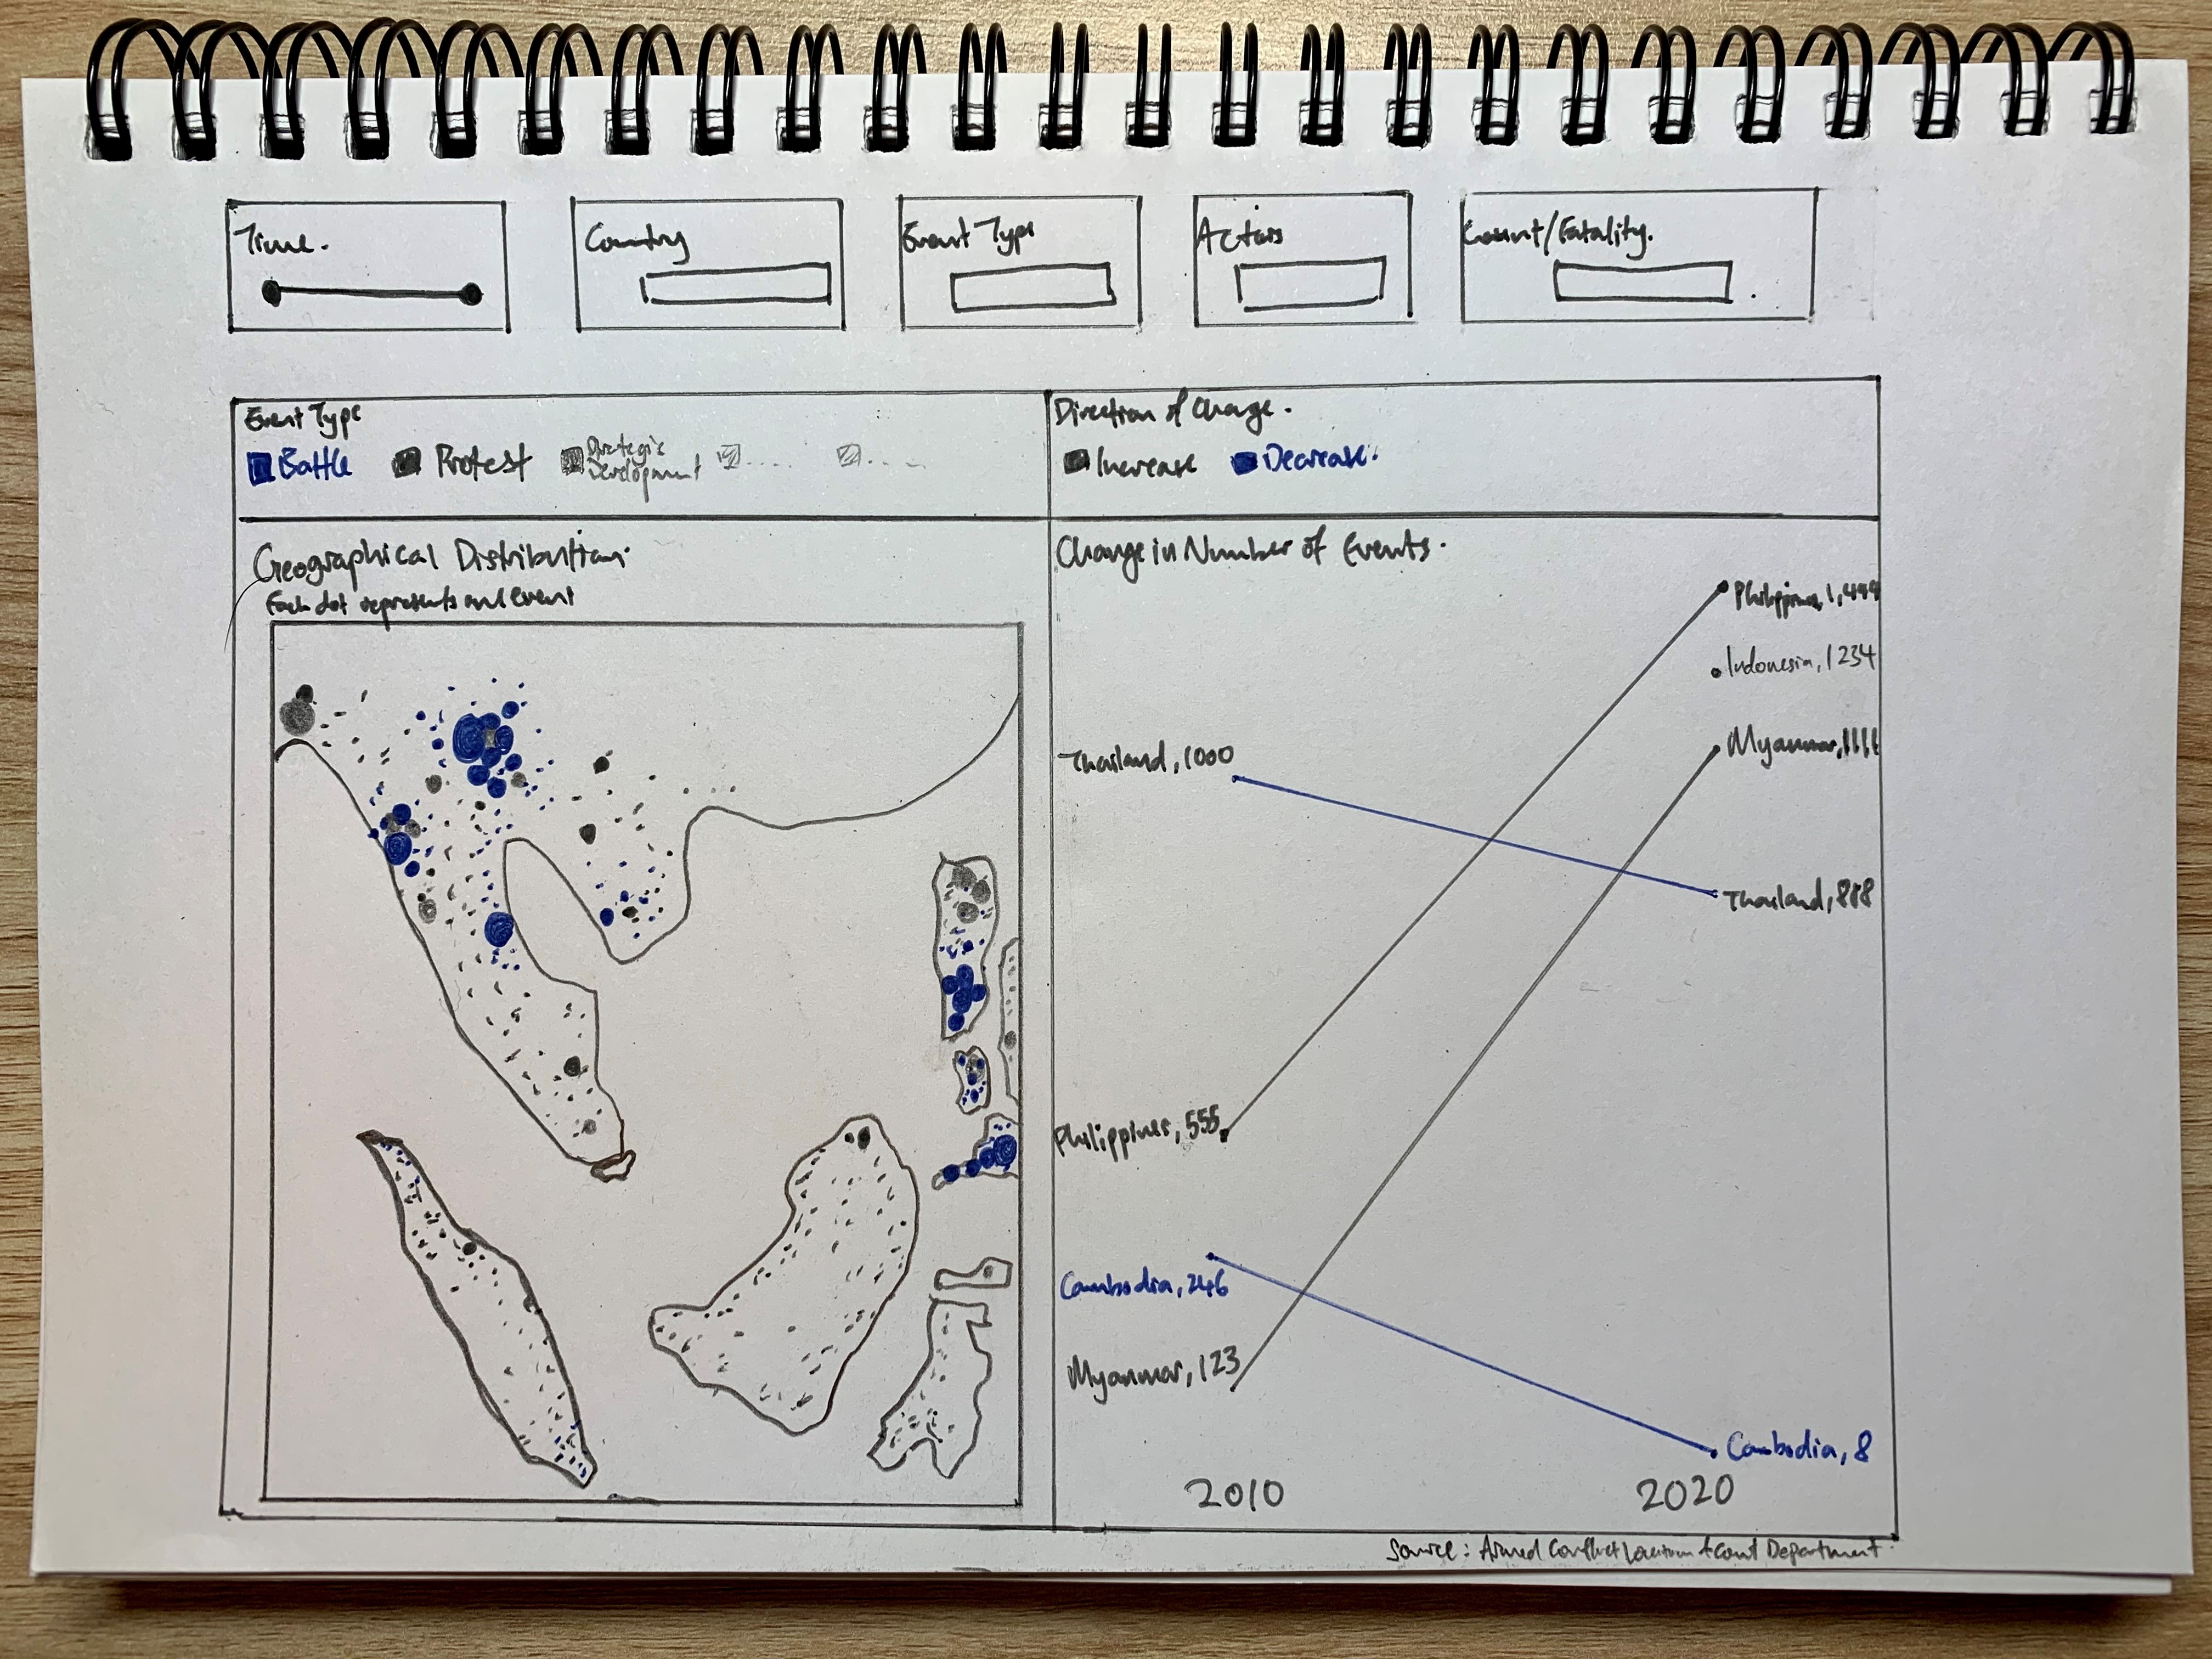 Time.
Country
Event Type
Actors
Count/Fatality.
Event Type
Battle Protest Strategic Development .... ...
Direction of Change.
Increase Decrease.
Geographical Distribution.
Each dot represents one event
Change in Number of Events.
Philippines, 1,499
Indonesia, 1234
Myanmar, 1111
Thailand, 1000
Thailand, 888
Philippines, 555
Cambodia, 246
Myanmar, 123
Cambodia, 8
2010 2020
Source: Armed Conflict Location Department